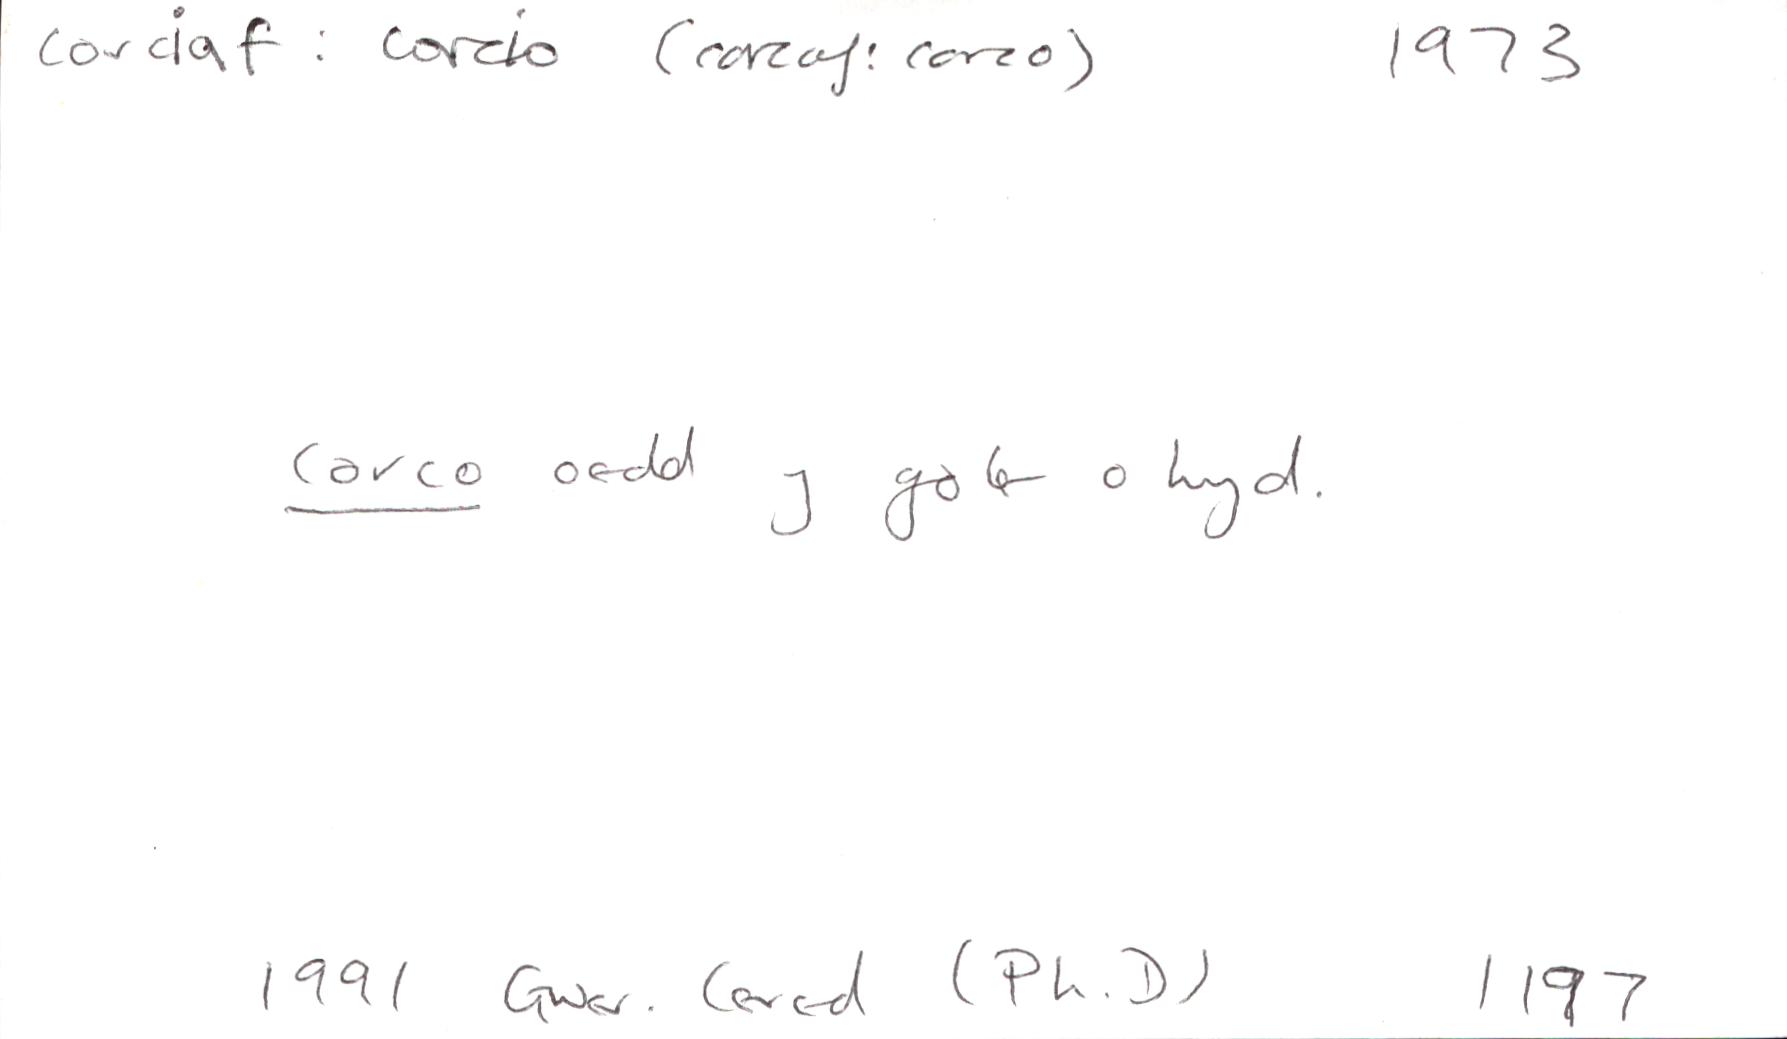 corciaf : corcio (corcaf: corco) 1973
corco oedd y gole o hyd.
1991 Gwer. Cered (Ph.D) 1197